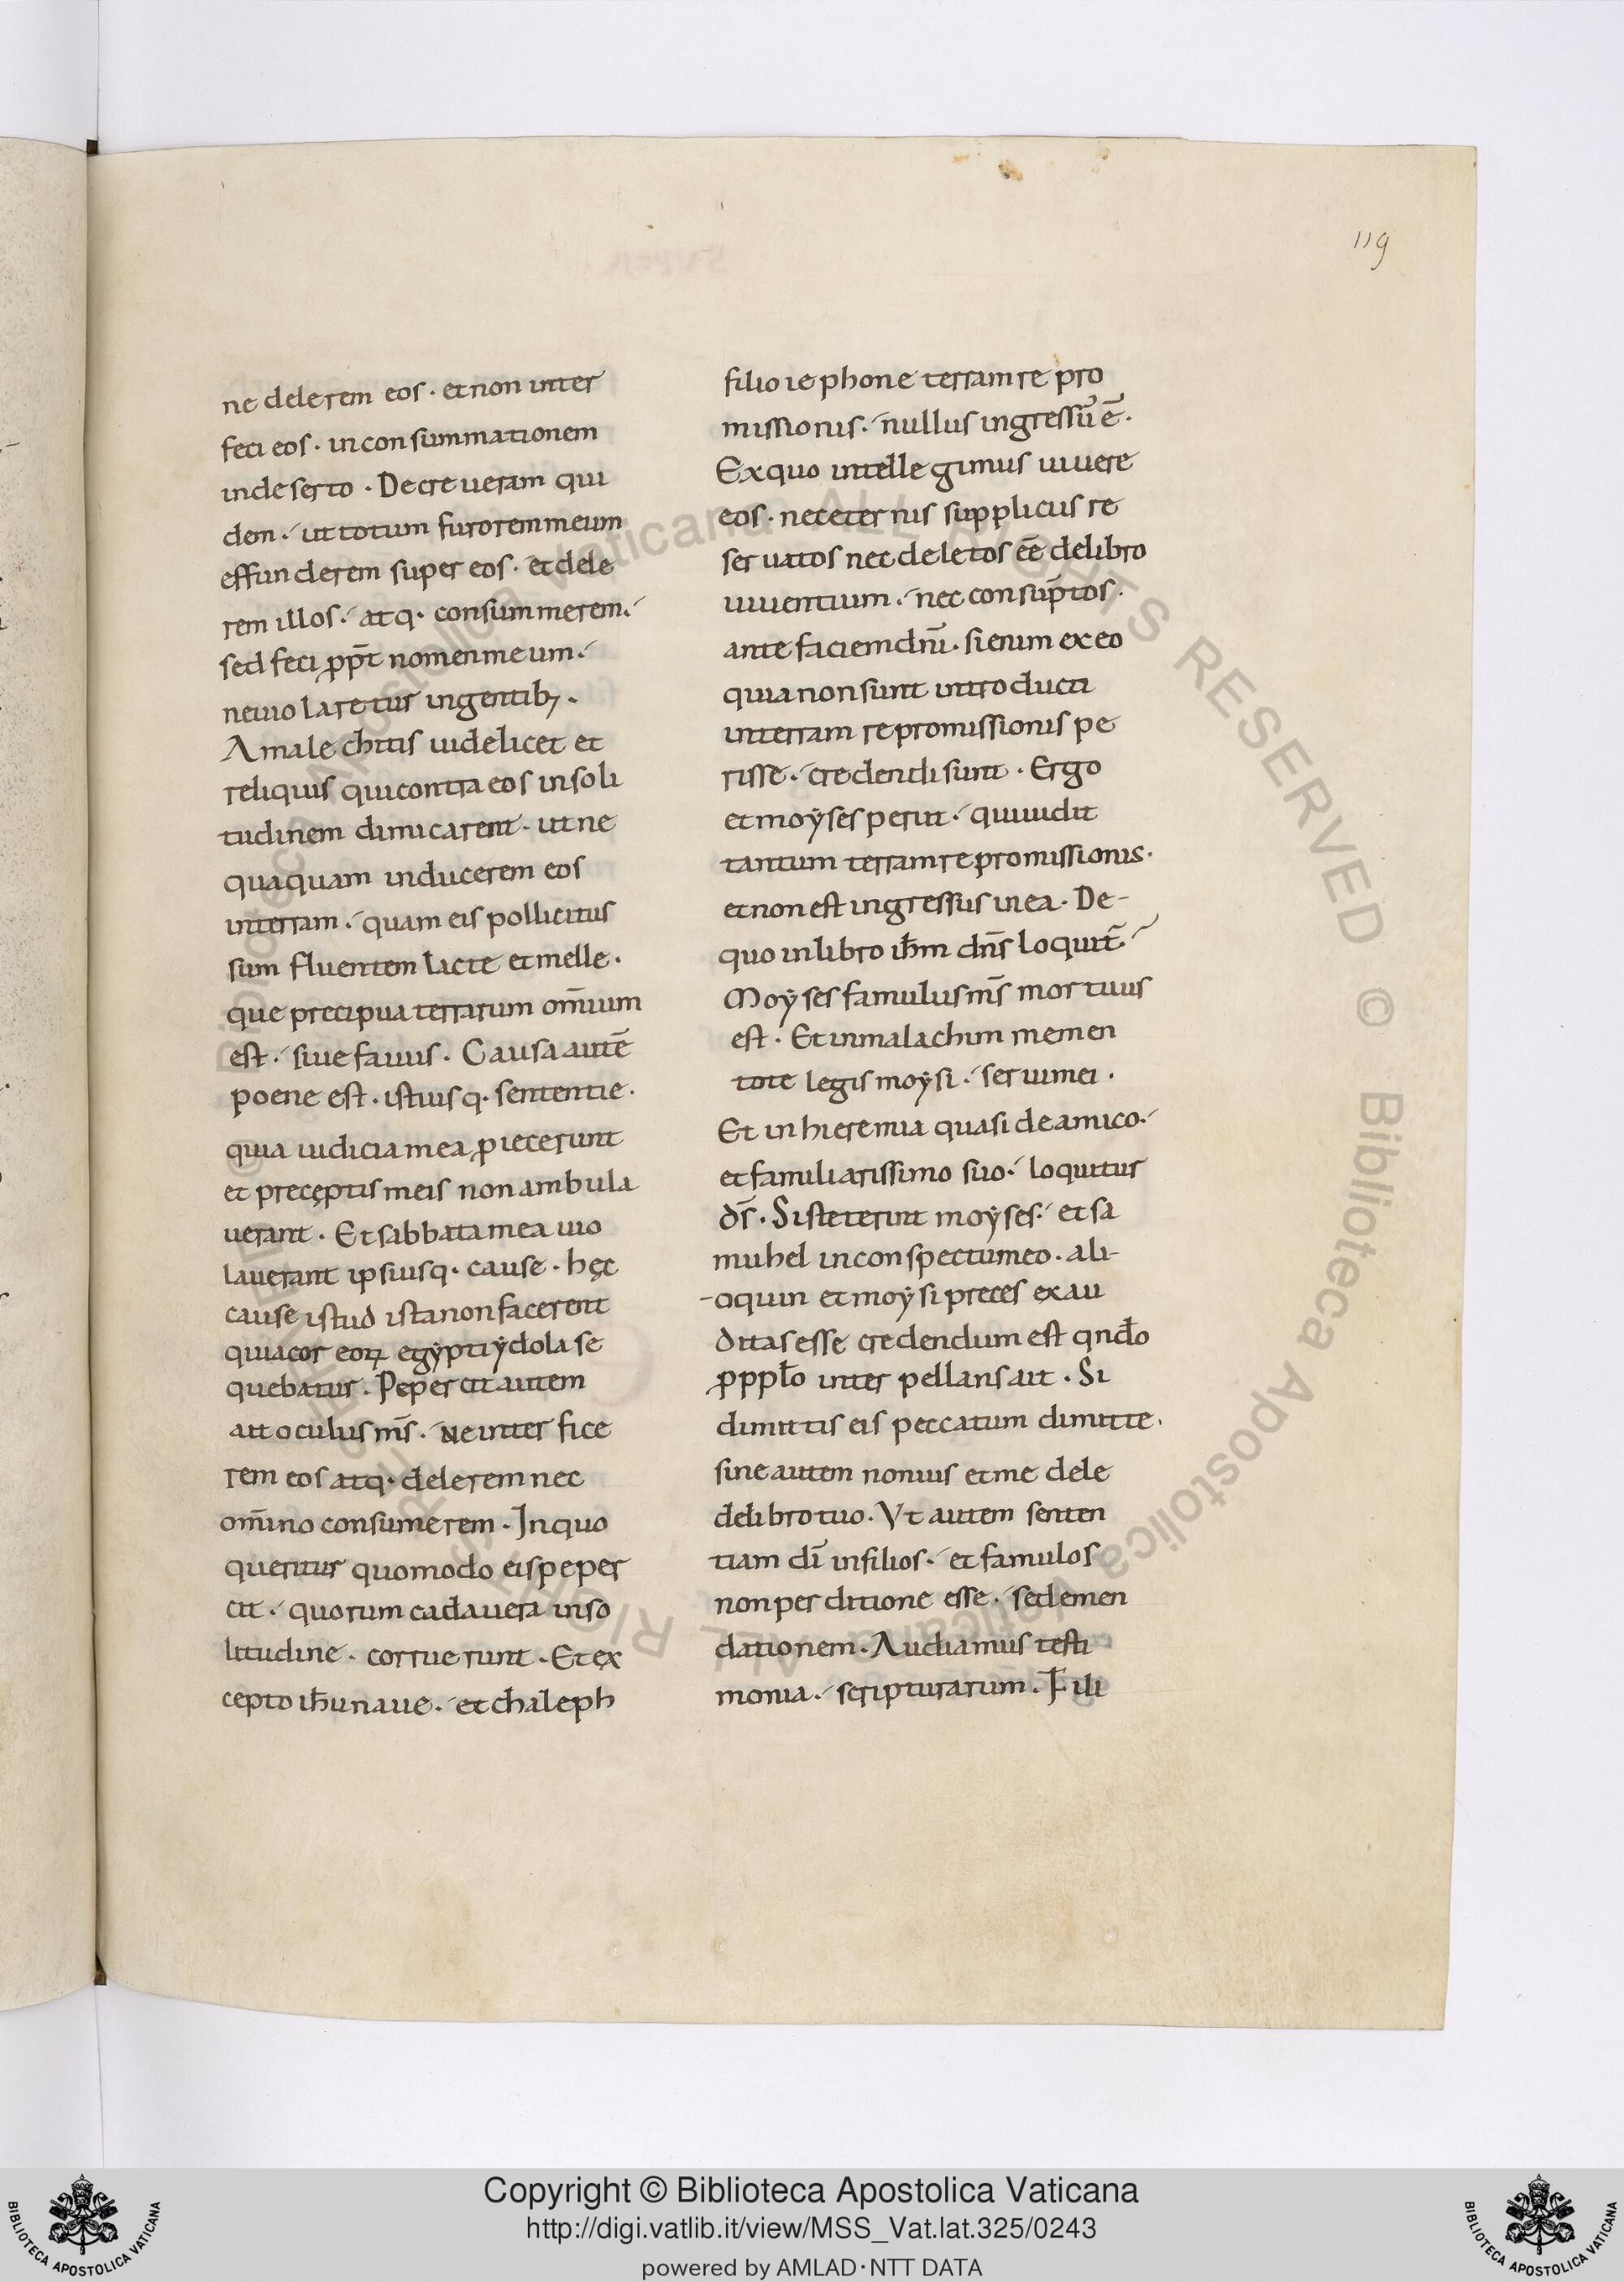 119
ne delerem eos · et non inter
feci eos · in consummationem
in deserto · Decreueram qui
dem ·́ ut totum furorem meum
effunderem super eos · et dele
rem illos ·́ atq· consummerem ·́
sed feci ꝓpt̄ nomen meum ·́
ne uiolaretur in gentibꝫ ·
Amalechitis uidelicet et
reliquis qui contra eos in soli
tudinem dimicarent · ut ne
quaquam inducerem eos
in terram ·́ quam eis pollicitus
sum fluentem lacte et melle ·
que precipua terrarum om̄ium
est ·́ siue fauus · Causa autē
poene est · istiusq· sententie ·
quia iudicia mea ꝓiecerunt
et preceptis meis non ambula
uerant · Et sabbata mea uio
lauerant ipsiusq· cause · hęc
cause istud ista non facerent
quia cor eoꝝ egẏpti ẏdola se
quebatur · Pepercit autem
ait oculus ms̄ ·́ ne interfice
rem eos atq· delerem nec
om̄ino consumerem · In quo
queritur quomodo eis peper
cit ·́ quorum cadauera in so
litudine · corruerunt · Et ex
cepto ih̄u naue ·́ et chaleph
filio iephone terram re pro
missionis ·́ nullus ingressus ē ·
Ex quo intellegimus uiuere
eos · nec eternis suppliciis re
seruatos nec deletos eē de libro
uiuentium ·́ nec consūptos ·
ante faciem dn̄i · si enim ex eo
quia non sunt introducti
in terram repromissionis pe
risse ·́ credendi sunt · Ergo
et moẏses periit ·́ qui uidit
tantum terram repromissionis ·
et non est ingressus in ea · De-
quo in libro ih̄m dn̄s loquit̄ ·́
Moẏses famulus ms̄ mortuus
est · Et in malachim memen
tote legis moẏsi ·́ serui mei ·
Et in hieremia quasi de amico ·́
et familiarissimo suo ·́ loquitur
ds̄ · Si steterint moẏses ·́ et sa
muhel in conspectu meo · ali-
-oquin et moẏsi preces exau
ditas esse credendum est qn̄do
ꝓ ppl̄o interpellans ait · Si
dimittis eis peccatum dimitte ·
sin eautem non uis et me dele
de libro tuo · Vt autem senten
tiam dī in filios ·́ et famulos
non perditione esse ·́ sed emen
dationem · Audiamus testi
monia ·́ scripturarum · Fili
Copyright © Biblioteca Apostolica Vaticana
http://digi.vatlib.it/view/MSS_Vat.lat.325/0243
powered by AMLAD·NTT DATA